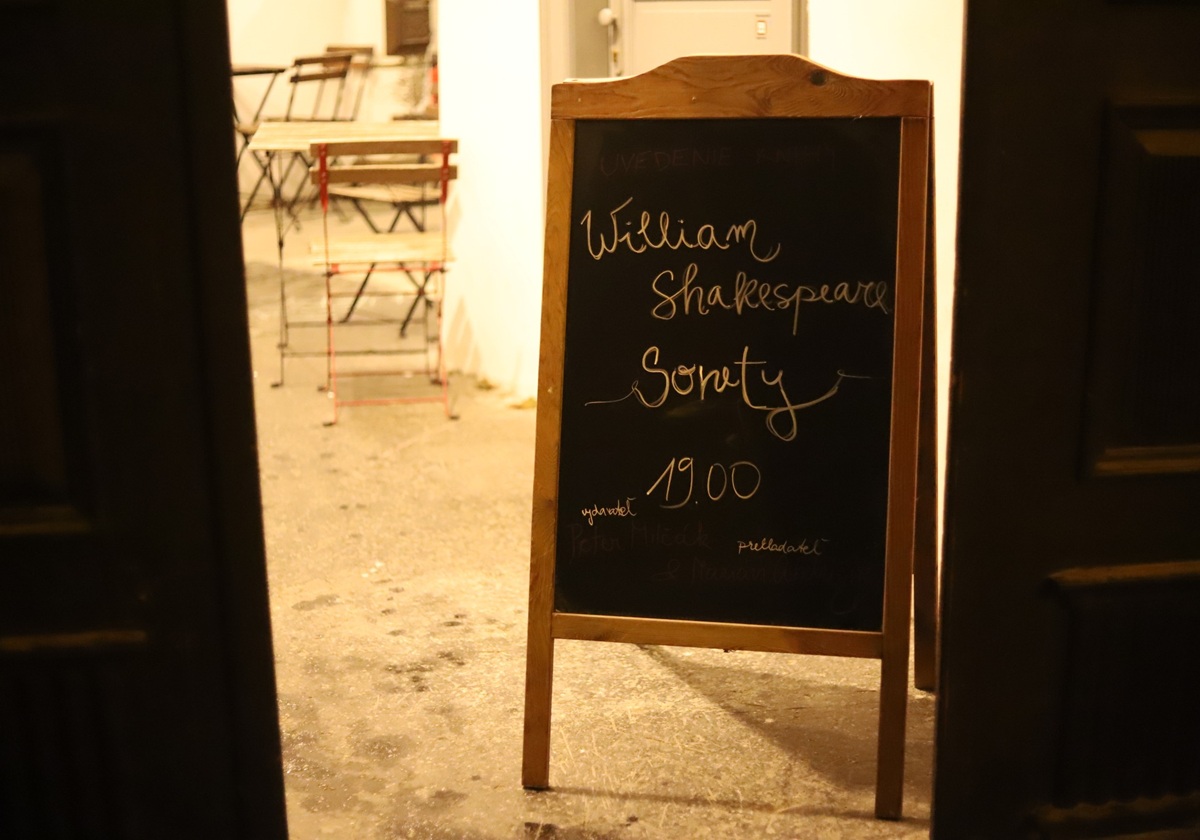 UVEDENIE KNIHY
William
Shakespeare
Sonety
19.00
vydavateľ
Peter Milčák
prekladateľ
&